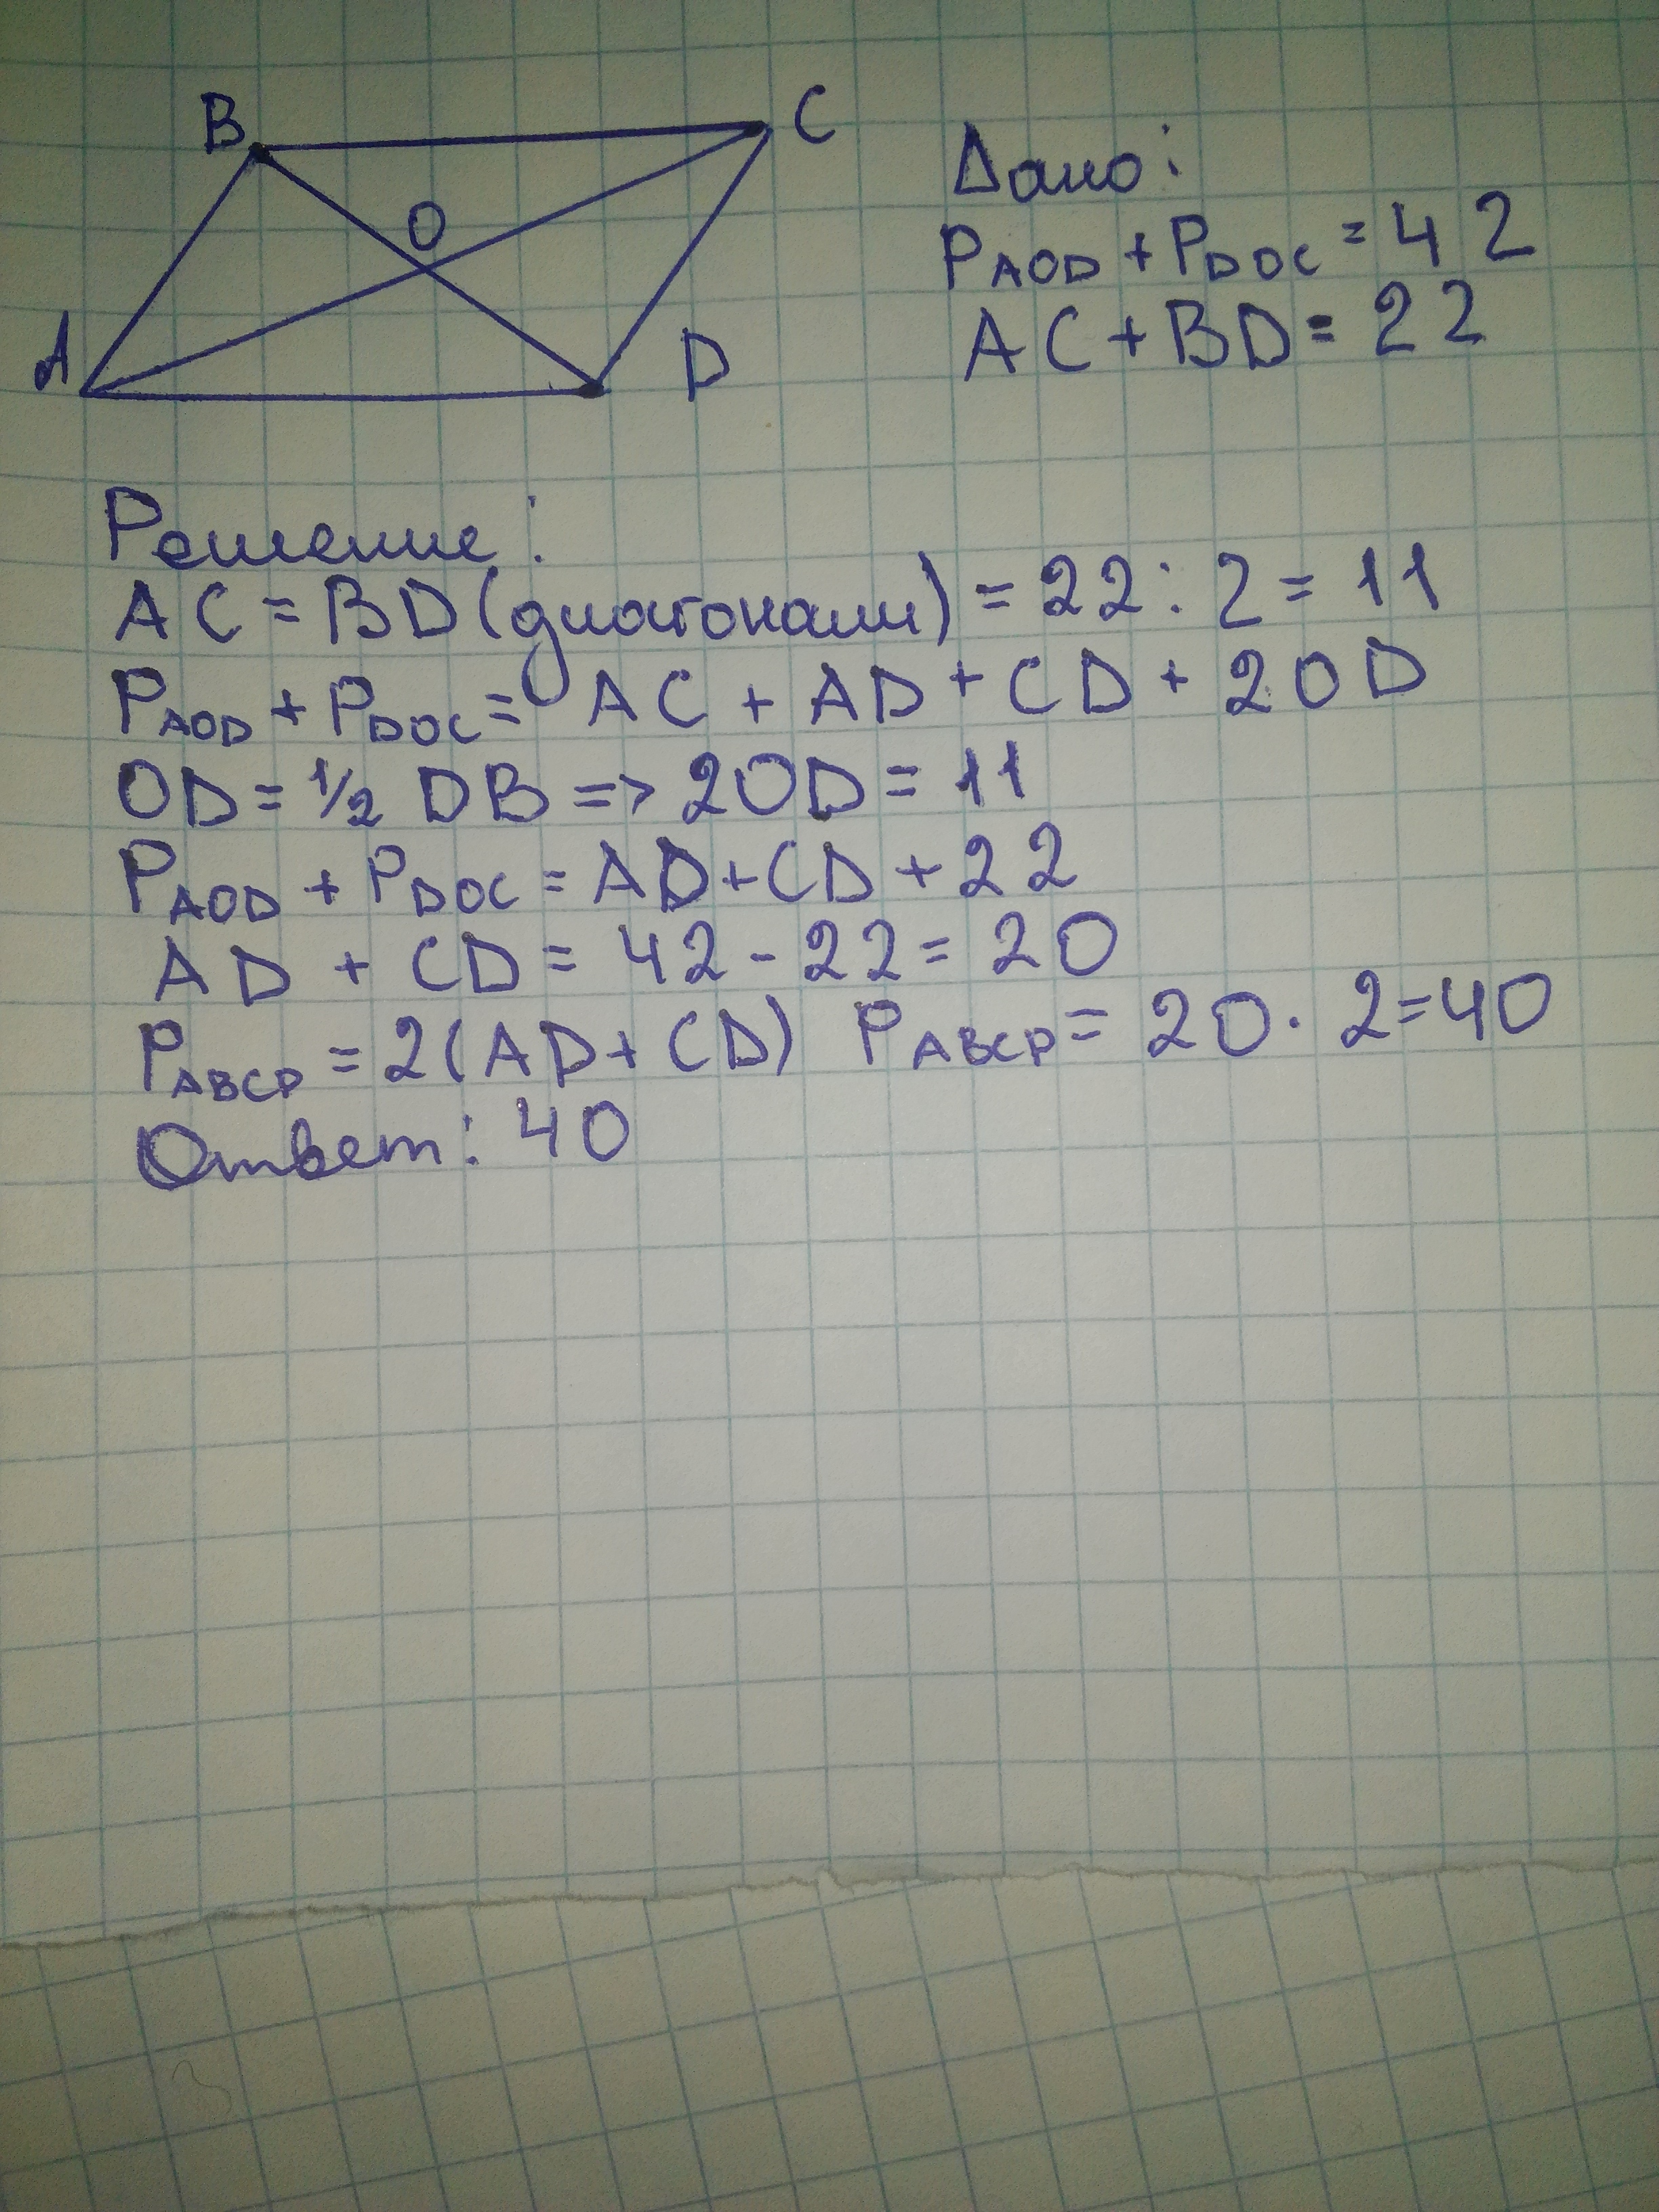 B
C
O
A
D
Дано:
PAOD + PDOC = 42
AC + BD = 22
Решение:
AC = BD (диагонали) = 22 : 2 = 11
PAOD + PDOC = AC + AD + CD + 2OD
OD = 1/2 DB => 2OD = 11
PAOD + PDOC = AD + CD + 22
AD + CD = 42 - 22 = 20
PABCD = 2(AD + CD) PABCD = 20 · 2 = 40
Ответ: 40